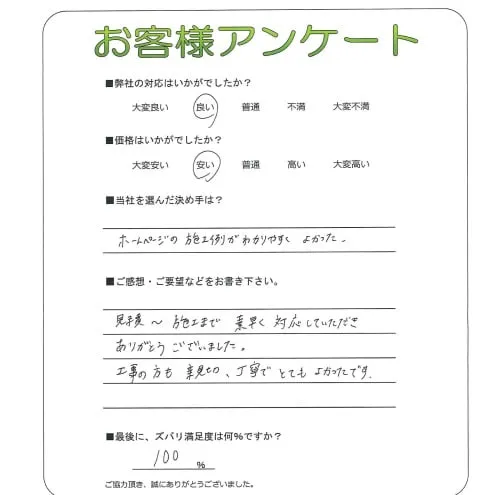 お客様アンケート
■弊社の対応はいかがでしたか?
大変良い 良い 普通 不満 大変不満
■価格はいかがでしたか?
大変安い 安い 普通 高い 大変高い
■当社を選んだ決め手は?
ホームページの施工例がわかりやすくよかった.
■ご感想・ご要望などをお書き下さい。
見積〜施工まで素早く対応していただき
ありがとうございました。
工事の方も親切、丁寧でとてもよかったです.
■最後に、ズバリ満足度は何%ですか?
100 %
ご協力頂き、誠にありがとうございました。